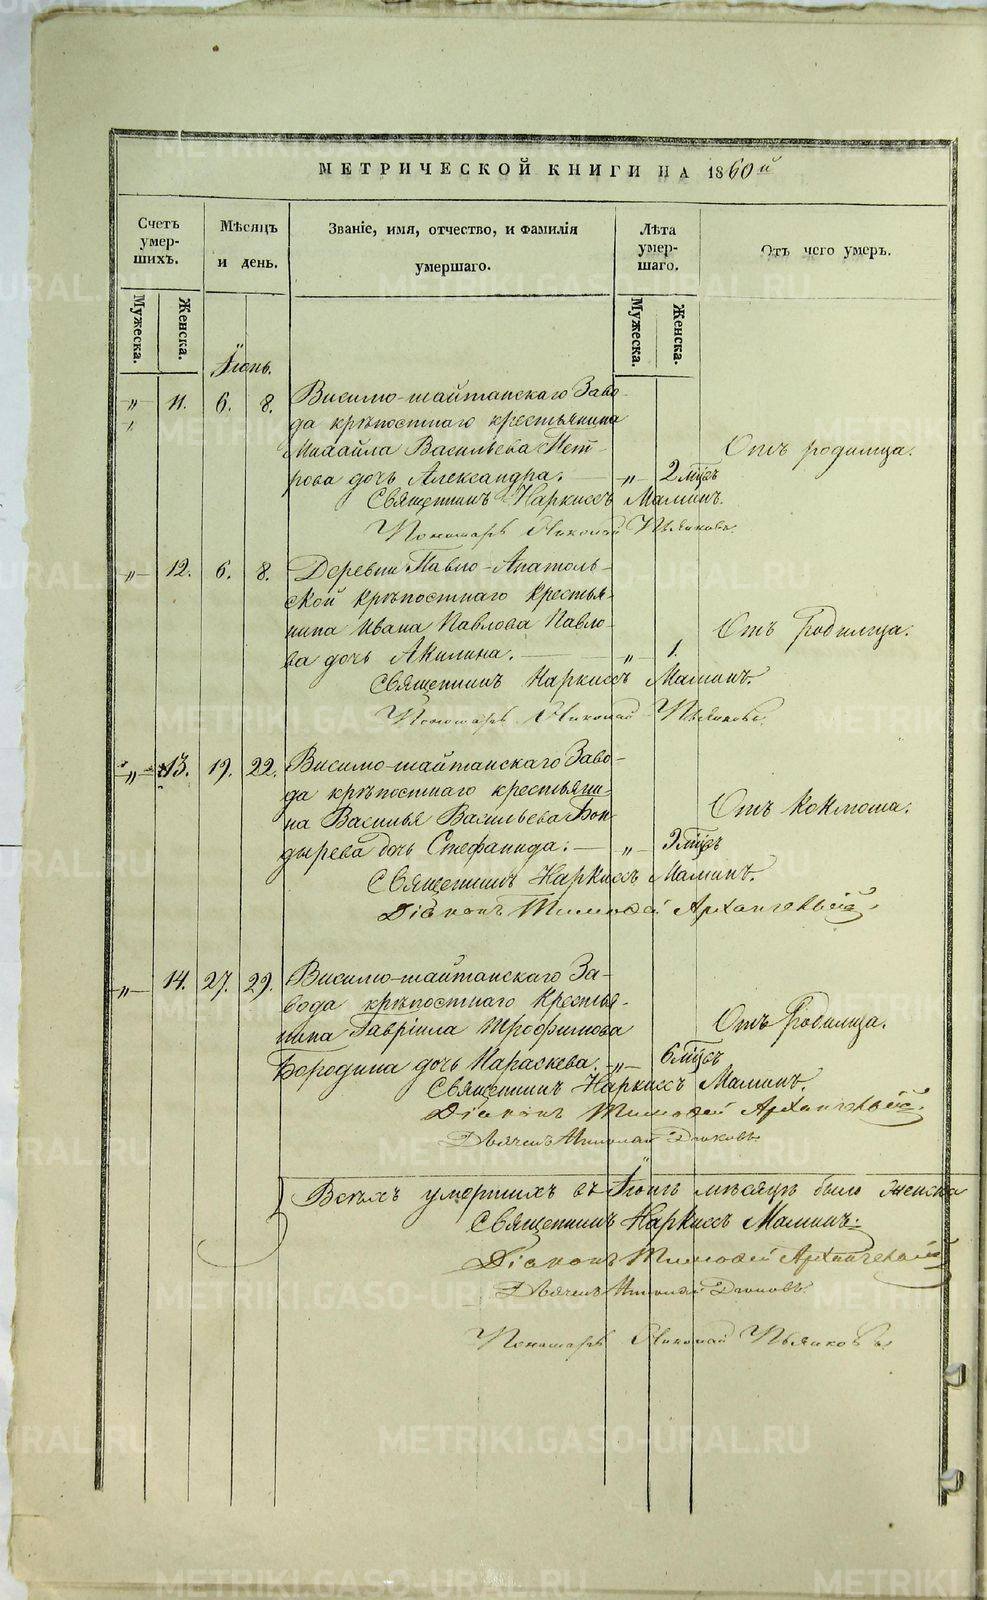 МЕТРИЧЕСКОЙ КНИГИ НА 1860й
Счетъ умер-шихъ.
Мѣсяцъ и день.
Званіе, имя, отчество, и фамилія умершаго.
Лѣта умер-шаго.
Отъ чего умеръ.
Мужеска.
Женска.
Мужеска.
Женска.
Іюнь.
„ 11. 6. 8. Висимо-шайтанскаго Заво-
да крѣпостнаго крестьянина
Михайла Васильева Пет-
рова дочь Александра. „ 2 мѣс
Отъ родимца.
Священникъ Наркиссъ Маминъ.
Пономарь Николай Пьянковъ.
„ 12. 6. 8. Деревни Павло-Анатоль-
ской крѣпостнаго крестья-
нина Ивана Павлова Павло-
ва дочь Акилина. „ 1.
Отъ Родимца.
Священникъ Наркиссъ Маминъ.
Пономарь Николай Пьянковъ.
„ 13. 19. 22. Висимо-шайтанскаго Заво-
да крѣпостнаго крестьяни-
на Василья Васильева Бон-
дырева дочь Стефанида. „ 9 мѣс
Отъ Коклюша.
Священникъ Наркиссъ Маминъ.
Діаконъ Тимофей Архангельскій.
„ 14. 27. 29. Висимо-шайтанскаго За-
вода крѣпостнаго Крестья-
нина Гавріила Трофимова
Бородина дочь Параскева. „ 6 мѣс
Отъ Родимца.
Священникъ Наркиссъ Маминъ.
Діаконъ Тимофей Архангельскій.
Дьячекъ Николай
Всѣхъ умершихъ въ Іюнѣ мѣсяцѣ было женска
Священникъ Наркиссъ Маминъ.
Діаконъ Тимофей Архангельскій
Дьячекъ Николай
Пономарь Николай Пьянковъ.
METRIKI.GASO-URAL.RU